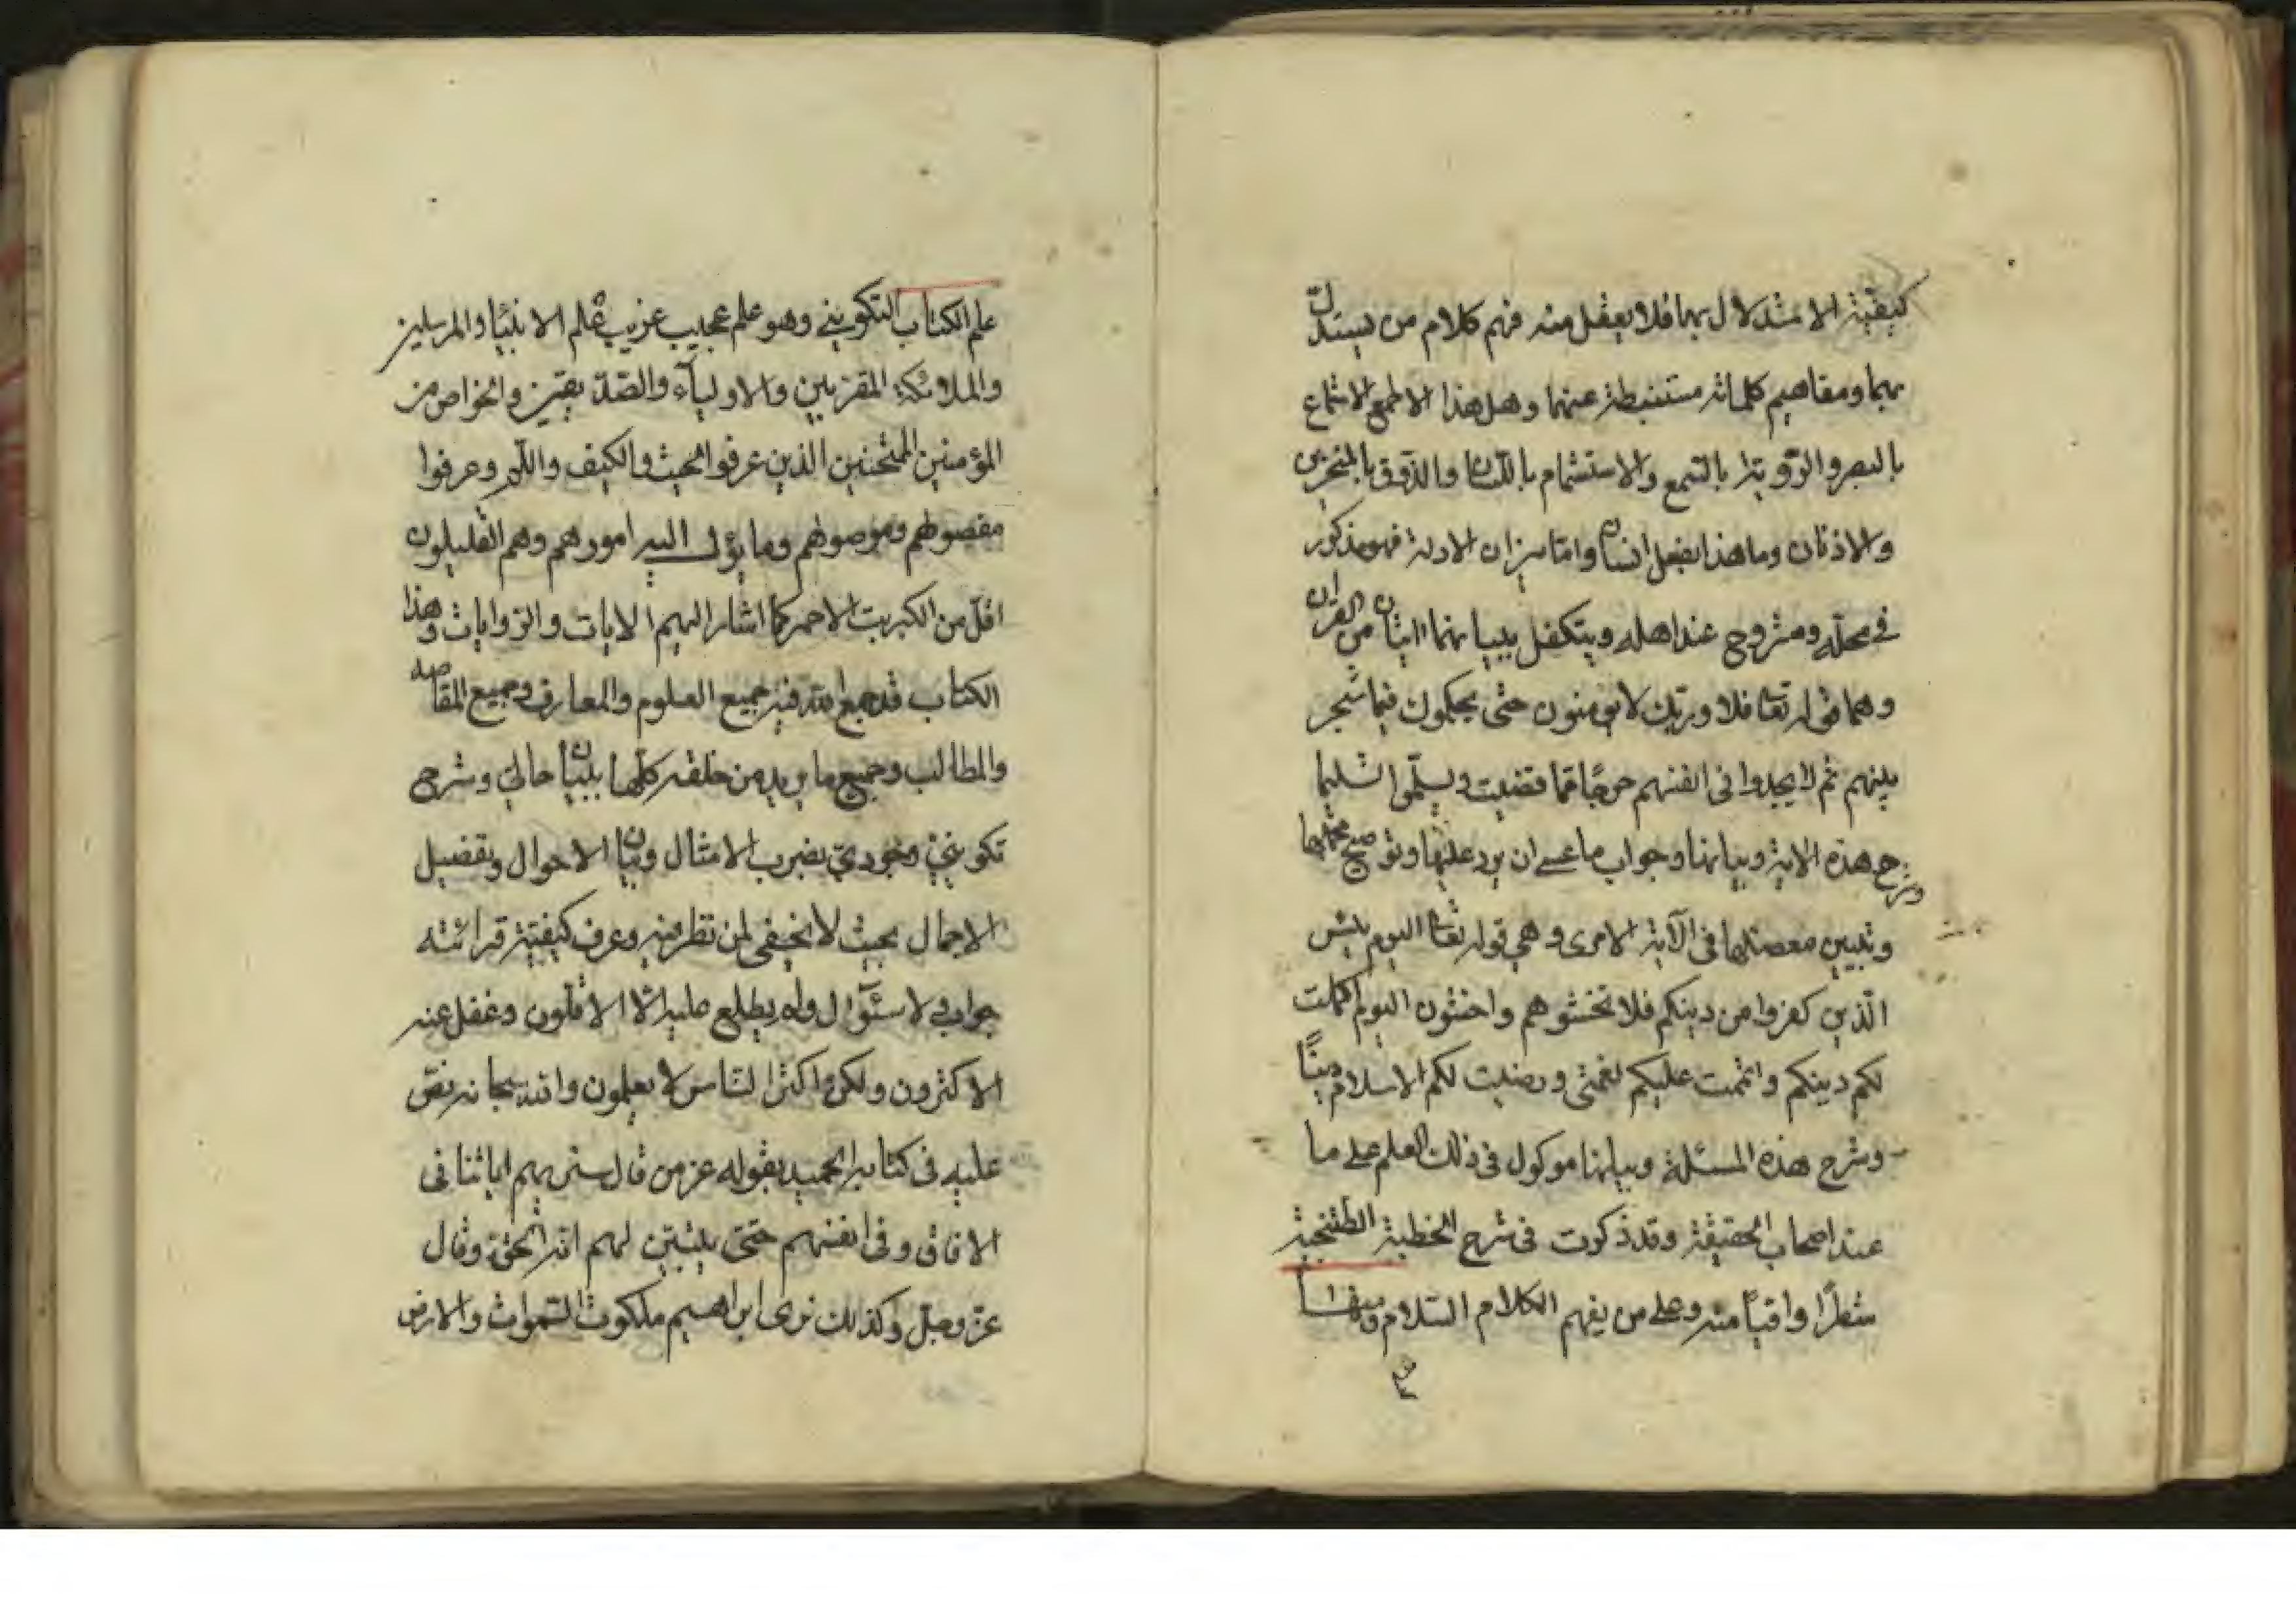 كيفية الاستدلال بها فلا يعقل منه فهم كلام من يستدل
بهما ومفاهيم كلماته مستنبطة عنهما وهل هذا الا طمع الاستماع
بالبصر والرؤية بالسمع والاستشمام باللسان والذوق بالمنخرين
والاذنان وما هذا بفعل انسان واما ميزان الادلة فهو مذكور
في محله ومشروح عند اهله ويتكفل ببيانهما ايتان من القران
وهما قوله تعا فلا وربك لا يؤمنون حتى يحكموك فيما شجر
بينهم ثم لا يجدوا في انفسهم حرجًا مما قضيت ويسلّموا تسليما
وشرح هذه الاية وبيانها وجواب ما عسى ان يرد عليها وتوضيح مجملها
وتبيين معضلها في الآية الاخرى وهي قوله تعا اليوم يئس
الّذين كفروا من دينكم فلا تخشوهم واخشون اليوم اكملت
لكم دينكم واتممت عليكم نعمتي ورضيت لكم الاسلام دينًا
وشرح هذه المسئلة وبيانها موكول في ذلك العلم على ما
عند اصحاب الحقيقة وقد ذكرت في شرح الخطبة الطتنجية
شطرًا وافيًا منه وعلى من يفهم الكلام السلام ومنها
علم الكتاب التكويني وهو علم عجيب غريب علم الانبيا والمرسلين
والملائكة المقربين والاولياء والصّدّيقين والخواص من
المؤمنين الممتحنين الذين عرفوا الحيث والكيف واللم وعرفوا
مفصولهم وموصولهم وما يؤل اليه امورهم وهم القليلون
اقلّ من الكبريت الاحمر كما اشار اليهم الايات والروايات وهذا
الكتاب قد جمع الله فيه جميع العلوم والمعارف وجميع المقاصد
والمطالب وجميع ما يريد من خلقه كلّها ببيان حالي وشرح
تكويني وجودي بضرب الامثال وبيان الاحوال وتفصيل
الاجمال بحيث لا يخفى لمن نظر فيه وعرف كيفية قرائته
جواب ولا سئوال ولم يطلع عليه الا الاقلّون وغفل عنه
الاكثرون ولكن اكثر الناس لا يعلمون والله سبحانه نصّ
عليه في كتابه الحميد بقوله عز من قال سنريهم اياتنا في
الافاق وفي انفسهم حتى يتبين لهم انه الحق وقال
عز وجل وكذلك نرى ابراهيم ملكوت السموات والارض